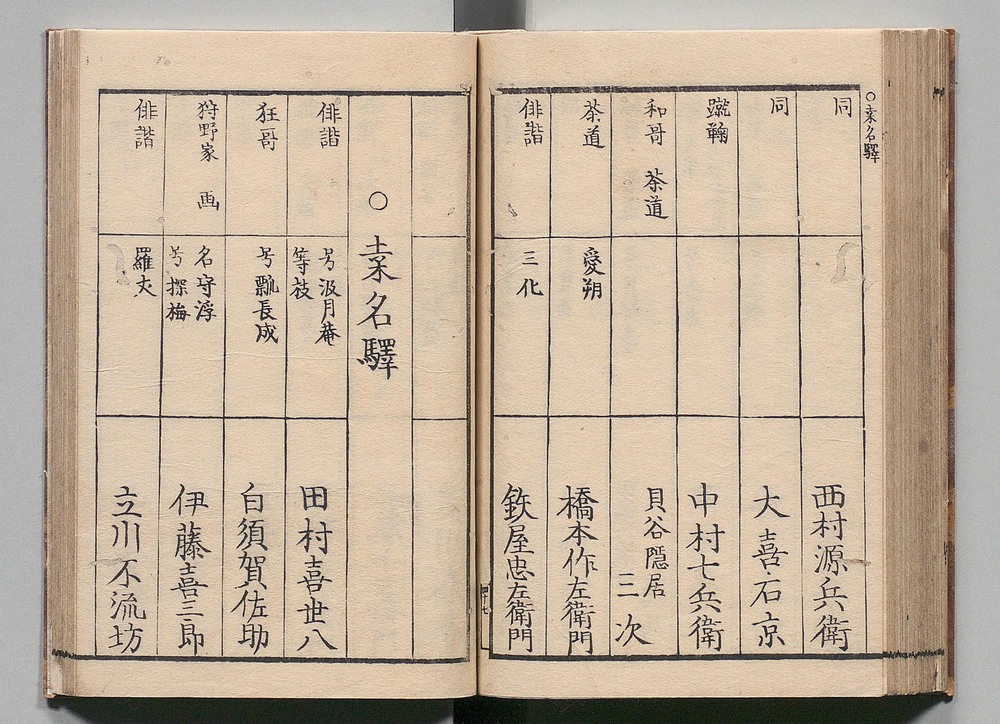 ○桒名驛
同
西村源兵衛
同
大喜石京
蹴鞠
中村七兵衛
和哥 茶道
貝谷隠居
三次
茶道
愛朔
橋本作左衛門
俳諧
三化
鉄屋忠左衛門
四十七
○桒名驛
俳諧
号汲月菴
等枝
田村喜世八
狂哥
号瓢長成
白須賀佐助
狩野家 画
名守浮
号探梅
伊藤喜三郎
俳諧
羅文
立川不流坊